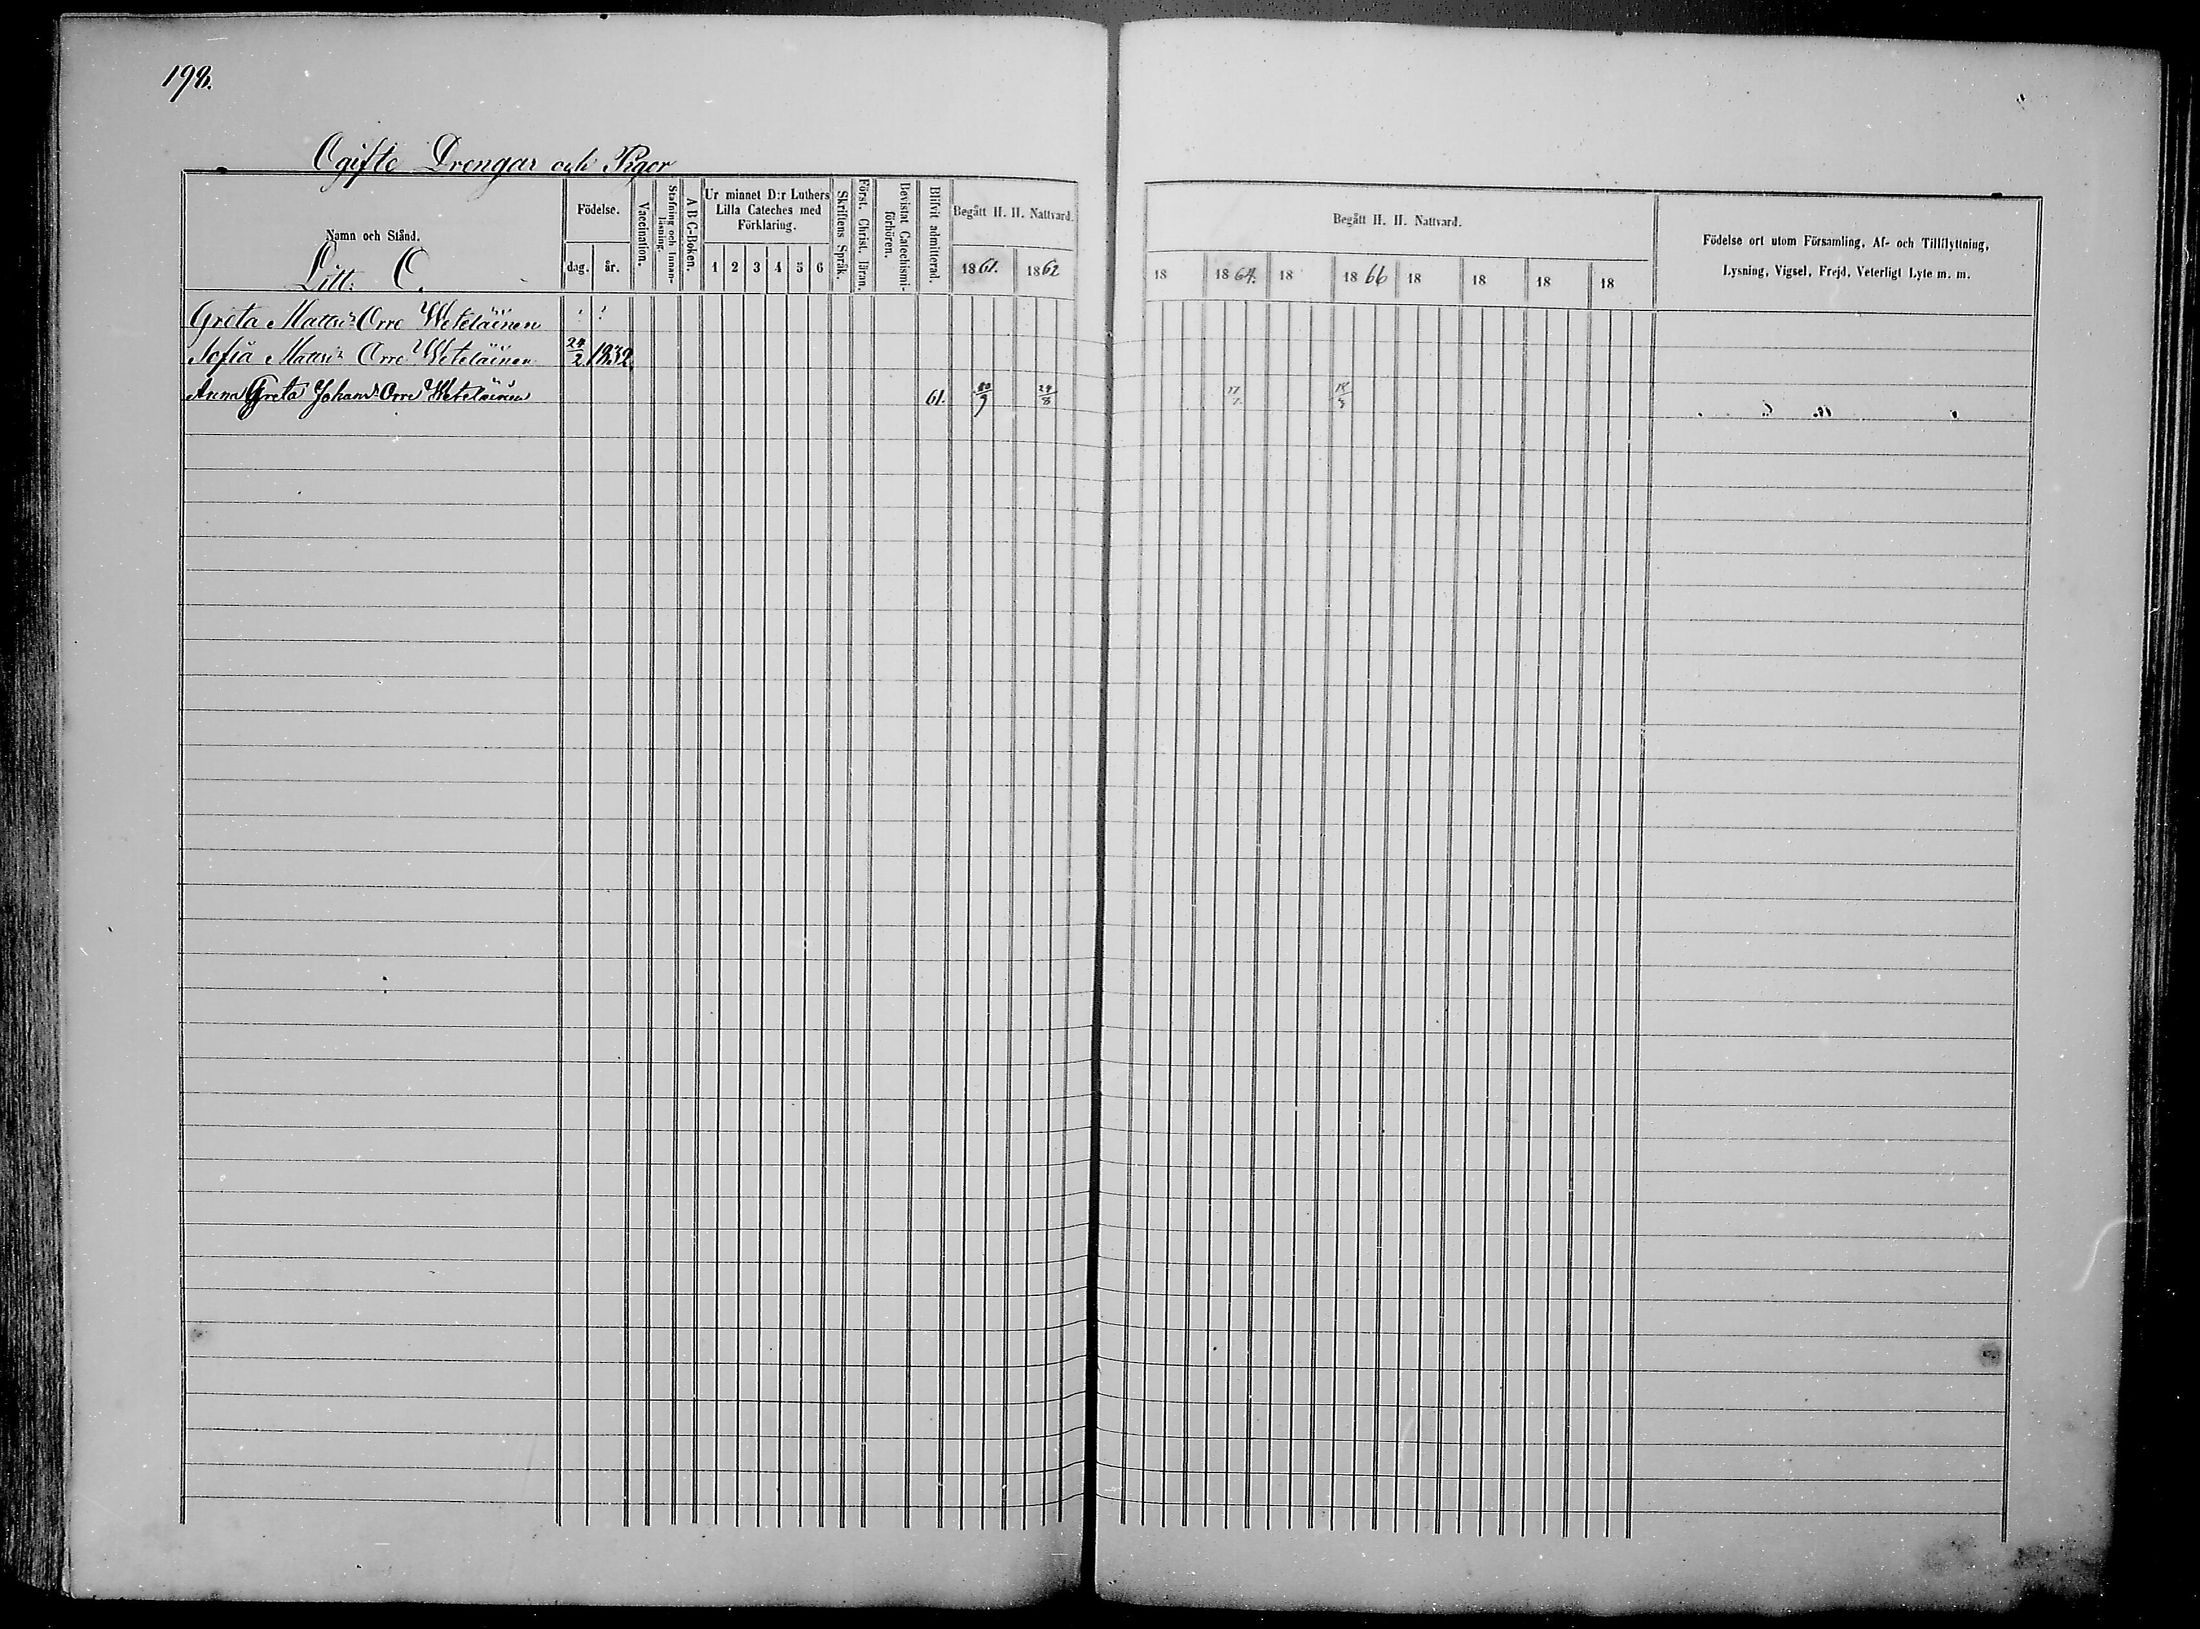 198.
Ogifte Drengar och Pigor
Namn och Stånd.
Litt: O.
Födelse.
dag. år.
Vaccination.
Stafning och Innan-läsning.
A B C-Boken.
Ur minnet D:r Luthers
Lilla Cateches med
Förklaring.
1 2 3 4 5 6
Skriftens Språk.
Först. Christ. läran.
Bevistat Catechismi-förhören.
Blifvit admitterad.
Begått H. H. Nattvard.
1861. 1862
Begått H. H. Nattvard.
18 1864. 18 1866 18 18 18 18
Födelse ort utom Församling, Af- och Tillflyttning,
Lysning, Vigsel, Frejd, Veterligt Lyte m. m.
Greta Matts Orre Weteläinen
Sofia Matts Orre Weteläinen 24/2 1832.
Anna Greta Johans Orre Weteläinen 61. 24/8